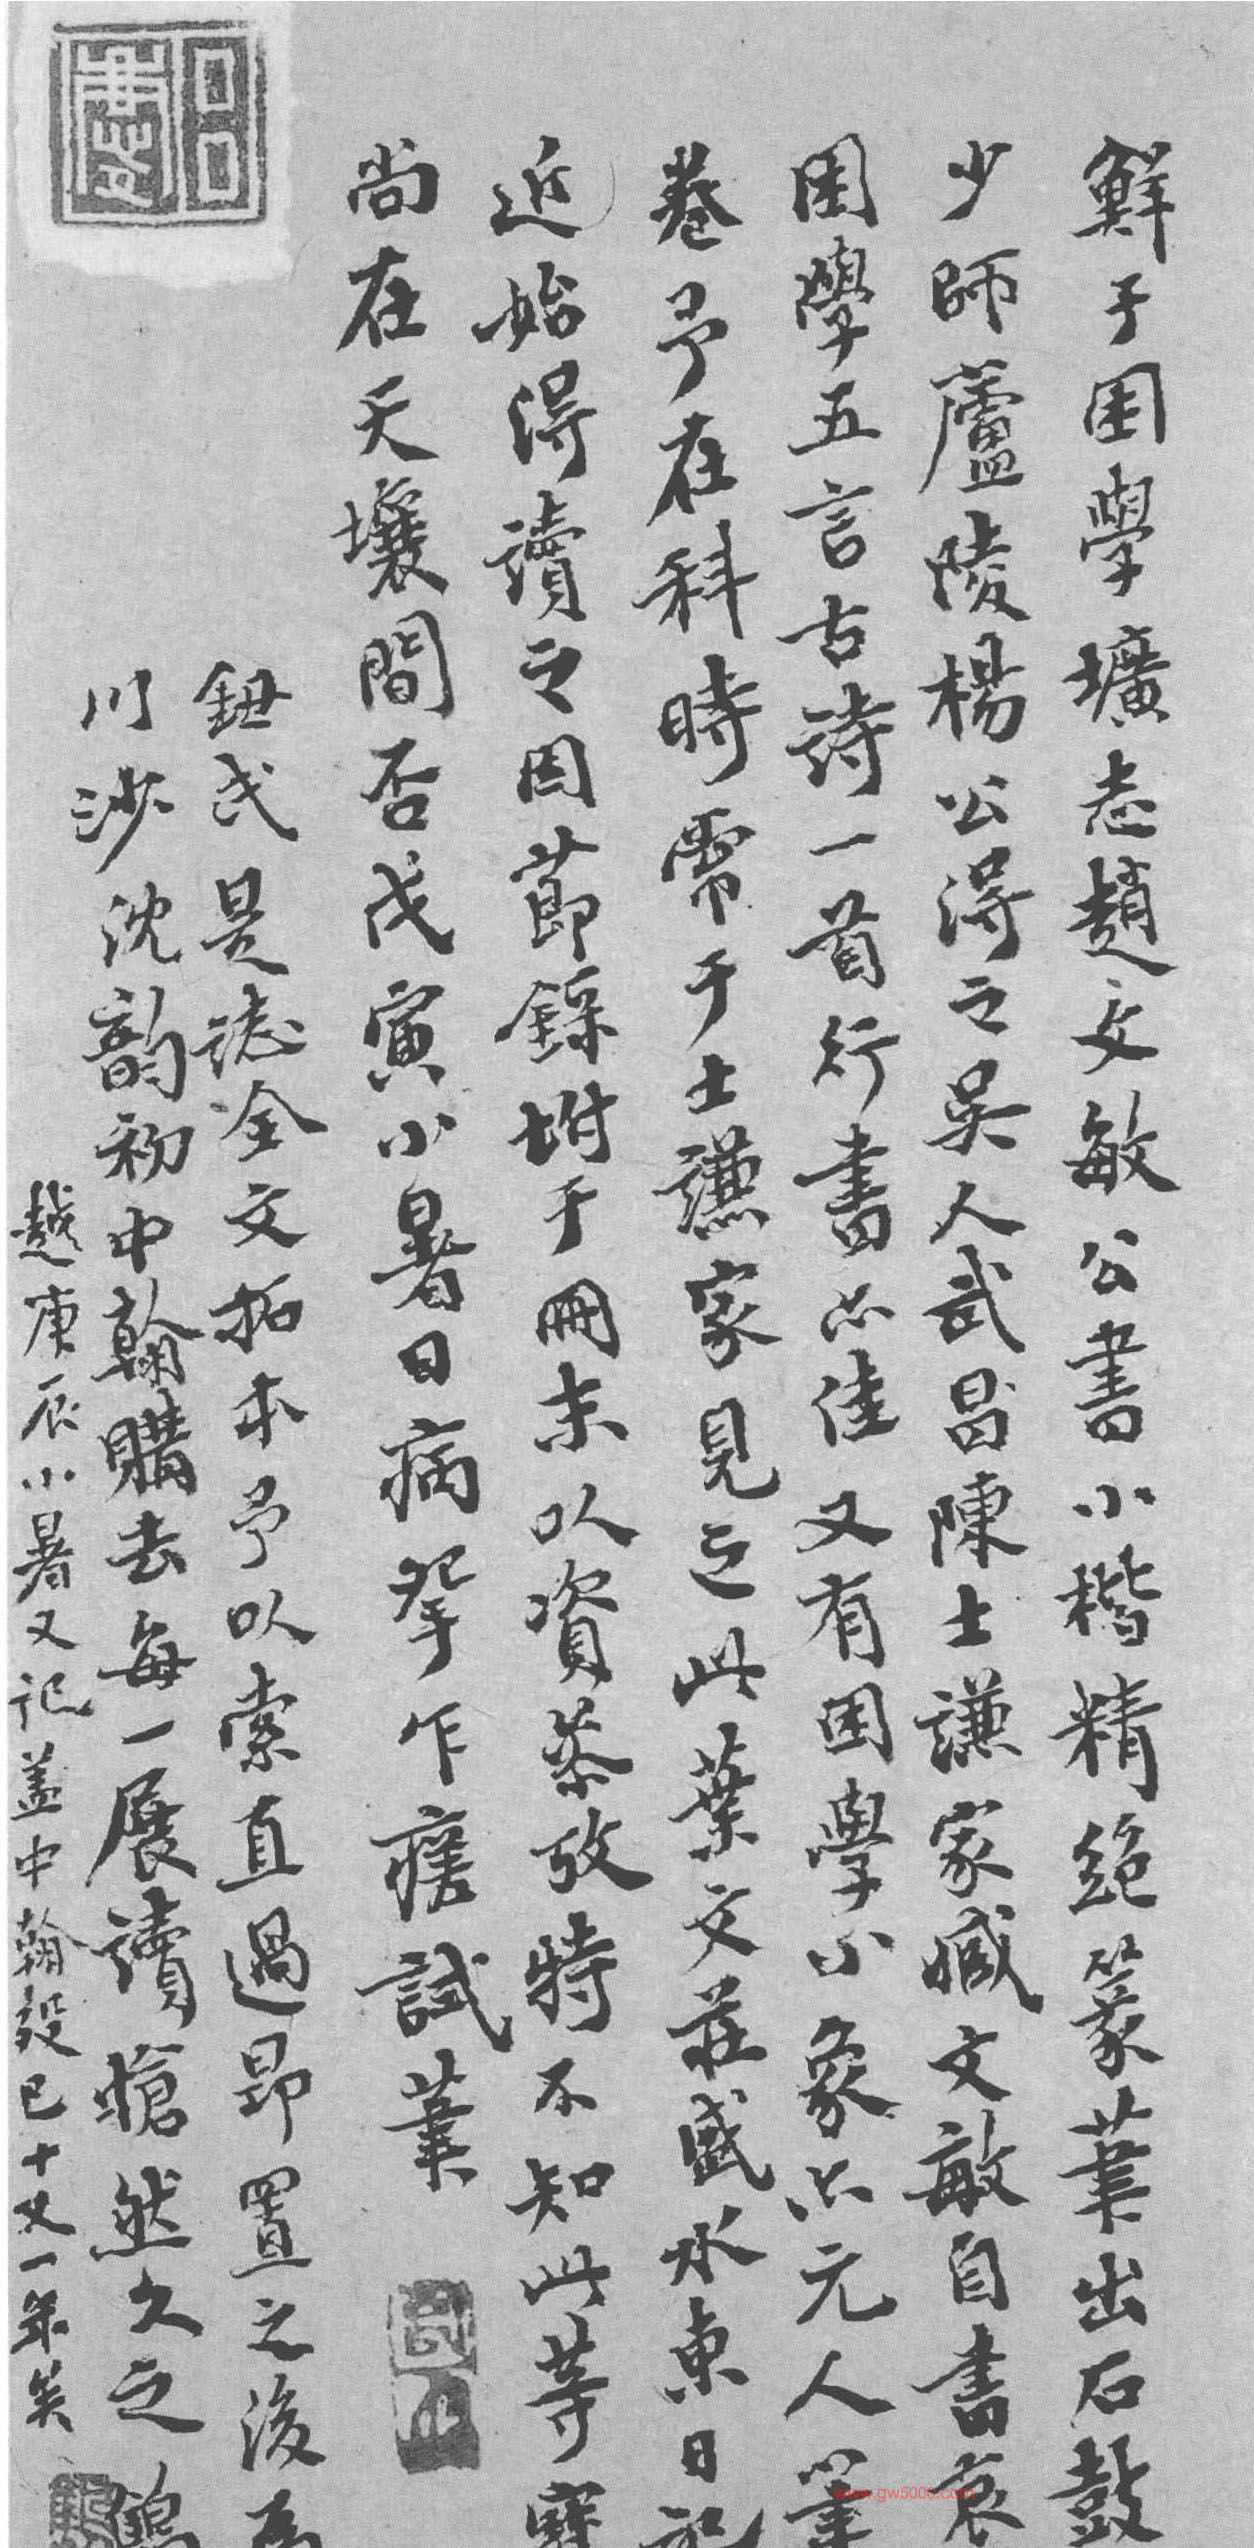 鮮于困學壙志趙文敏公書小楷精絕篆筆出石鼓
少師蘆陵楊公得之吳人武昌陳士謙家臧文敏自書哀
困學五言古詩一首行書亦佳又有困學小象亦元人筆
卷予在科時常于士謙家見之此葉文莊盛水東日記
近始得讀之因節錄坿于冊末以資叅攷特不知此等寶
尚在天壤間否戊寅小暑日病拏乍痊試筆
鈕氏是誌全文拓本予以索直過昂置之後為
川沙沈韵初中翰購去每一展讀愴然久之
越庚辰小暑又記盖中翰歿已十又一年矣
www.gw5000.com